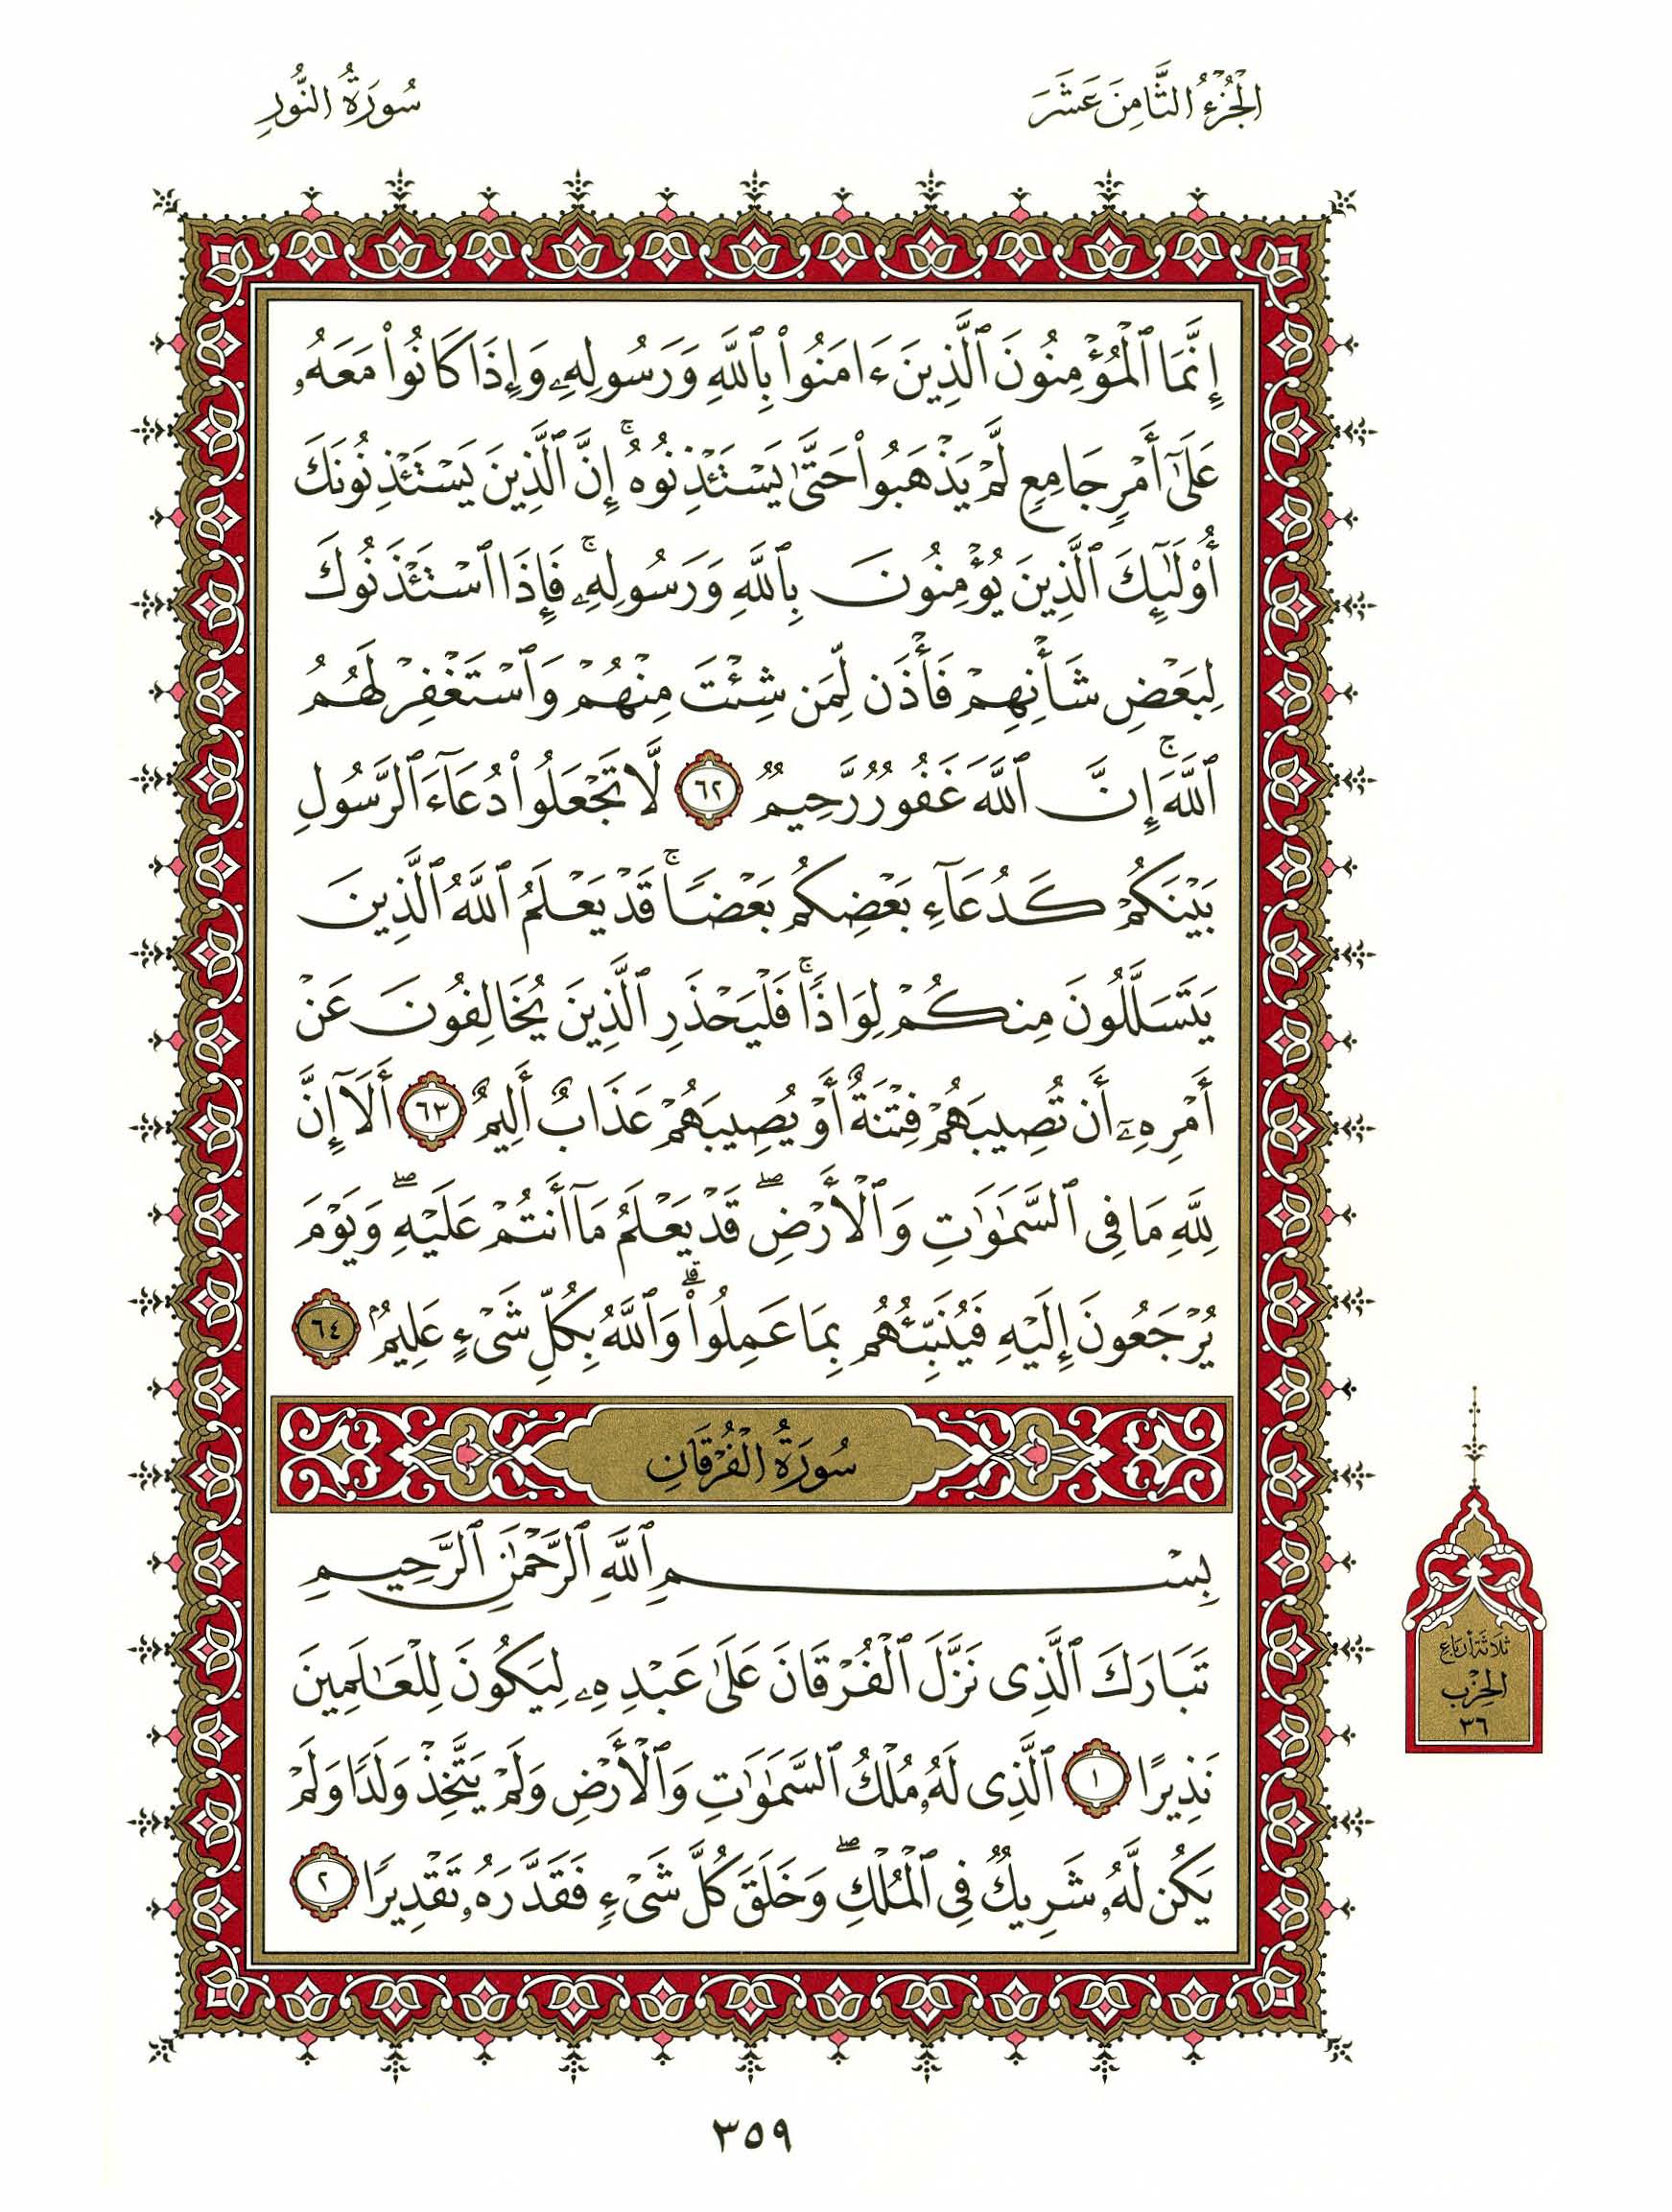 الجُزْءُ الثَّامِنَ عَشَرَ
سُورَةُ النُّورِ
إِنَّمَا ٱلْمُؤْمِنُونَ ٱلَّذِينَ ءَامَنُوا۟ بِٱللَّهِ وَرَسُولِهِۦ وَإِذَا كَانُوا۟ مَعَهُۥ
عَلَىٰٓ أَمْرٍ جَامِعٍ لَّمْ يَذْهَبُوا۟ حَتَّىٰ يَسْتَـْٔذِنُوهُ ۚ إِنَّ ٱلَّذِينَ يَسْتَـْٔذِنُونَكَ
أُو۟لَـٰٓئِكَ ٱلَّذِينَ يُؤْمِنُونَ بِٱللَّهِ وَرَسُولِهِۦ ۚ فَإِذَا ٱسْتَـْٔذَنُوكَ
لِبَعْضِ شَأْنِهِمْ فَأْذَن لِّمَن شِئْتَ مِنْهُمْ وَٱسْتَغْفِرْ لَهُمُ
ٱللَّهَ ۚ إِنَّ ٱللَّهَ غَفُورٌ رَّحِيمٌ ٦٢ لَّا تَجْعَلُوا۟ دُعَآءَ ٱلرَّسُولِ
بَيْنَكُمْ كَدُعَآءِ بَعْضِكُم بَعْضًا ۚ قَدْ يَعْلَمُ ٱللَّهُ ٱلَّذِينَ
يَتَسَلَّلُونَ مِنكُمْ لِوَاذًا ۚ فَلْيَحْذَرِ ٱلَّذِينَ يُخَالِفُونَ عَنْ
أَمْرِهِۦٓ أَن تُصِيبَهُمْ فِتْنَةٌ أَوْ يُصِيبَهُمْ عَذَابٌ أَلِيمٌ ٦٣ أَلَآ إِنَّ
لِلَّهِ مَا فِى ٱلسَّمَـٰوَٰتِ وَٱلْأَرْضِ ۖ قَدْ يَعْلَمُ مَآ أَنتُمْ عَلَيْهِ ۖ وَيَوْمَ
يُرْجَعُونَ إِلَيْهِ فَيُنَبِّئُهُم بِمَا عَمِلُوا۟ ۗ وَٱللَّهُ بِكُلِّ شَىْءٍ عَلِيمٌۢ ٦٤
سُورَةُ الْفُرْقَانِ
بِسْمِ ٱللَّهِ ٱلرَّحْمَـٰنِ ٱلرَّحِيمِ
تَبَارَكَ ٱلَّذِى نَزَّلَ ٱلْفُرْقَانَ عَلَىٰ عَبْدِهِۦ لِيَكُونَ لِلْعَـٰلَمِينَ
نَذِيرًا ١ ٱلَّذِى لَهُۥ مُلْكُ ٱلسَّمَـٰوَٰتِ وَٱلْأَرْضِ وَلَمْ يَتَّخِذْ وَلَدًا وَلَمْ
يَكُن لَّهُۥ شَرِيكٌ فِى ٱلْمُلْكِ ۖ وَخَلَقَ كُلَّ شَىْءٍ فَقَدَّرَهُۥ تَقْدِيرًا ٢
ثَلَاثَةُ أَرْبَاعِ
الحِزْبِ
٣٦
٣٥٩